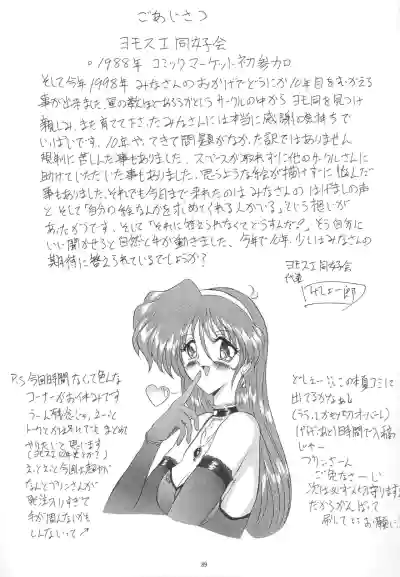 ごあいさつ
ヨモスエ同好会
。1988年 コミックマーケット初参加
そして今年1998年 みなさんのおかげでどうにか10年目をむかえる
事が出来ました。星の数ほどあろうかというサークルの中から ヨモ同を見つけ
親しみ、また育てて下さったみなさんには本当に感謝の気持ちで
いっぱいです。10年やってきて問題がなかった訳ではありません
規制に苦しんだ事もありました。スペースが取れずに他のサークルさんに
助けていただいた事もありました。思うような絵が描けずに悩んだ
事もありました。それでも今日まで来れたのは みなさんの はげましの声
と そして「自分の絵なんかを求めてくれる人がいる」という想いが
あったからです。そして「それに答えられなくてどうすんだ?」そう自分に
いい聞かせると自然と手が動きました。今年で10年、少しはみなさんの
期待に答えられているでしょうか?
ヨモスエ同好会
代表
みしょー郎
P.S 今回時間なくて色んな
コーナーがお休みです
うーん残念じゃ、えーと
トークとかは次にでも まとめて
やりたいと思います
えっとえっと今回は超ヤバ
なんとプリンさんが
発注入りすぎて
手が回んないかも
しんないって→
どしぇー、この本夏コミに
出てるかなぁ
1日時間で入稿
じゃー
プリンさーん
ご免なさーい
次は必ず〆切守ります
だからがんばって
刷して…お願い
89